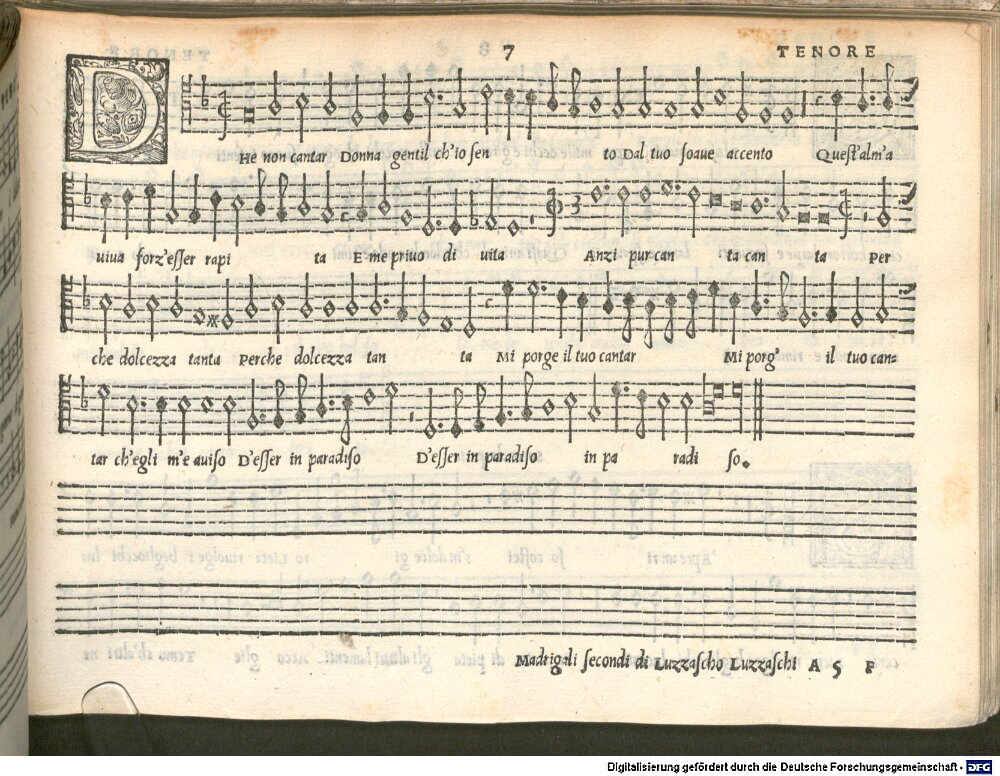 7 TENORE
DHe non cantar Donna gentil ch'io sen to Dal tuo soaue accento Quest'alm'a
uiua forz'esser rapi ta E me priuo di uita Anzi pur can ta can ta Per
che dolcezza tanta Perche dolcezza tan ta Mi porge il tuo cantar Mi porg' il tuo can=
tar ch'egli m'e auiso D'esser in paradiso D'esser in paradiso in pa radi so.
Madrigali secondi di Luzzascho Luzzaschi A 5 F
Digitalisierung gefördert durch die Deutsche Forschungsgemeinschaft - DFG